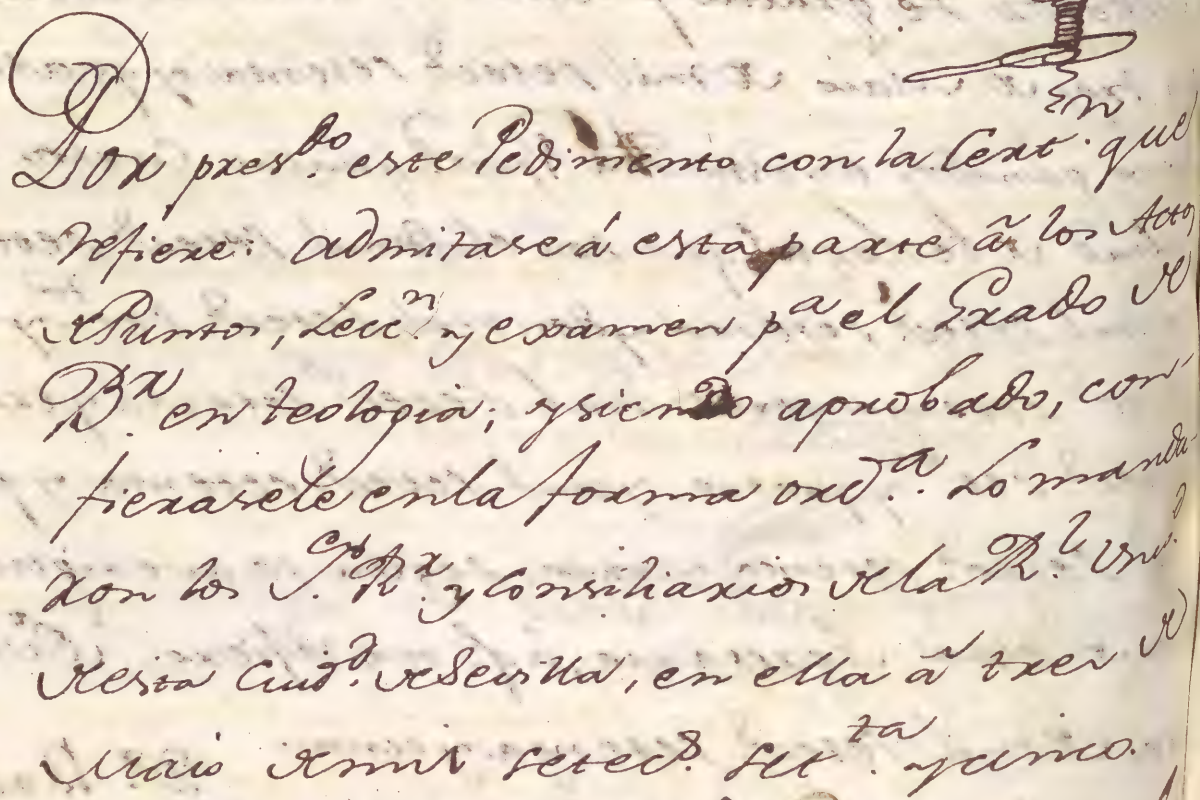 Por pres.do este Pedimento con la Cert.n que
refiere: admitase á esta parte ã los Actos
de Puntos, Lecc.n y examen p.a el Grado de
B.r en teologia; y siendo aprobado, con-
fierasele en la forma ord.a. Lo manda-
ron los S.es R.r y Consiliarios de la R.l Univ.d
de esta Ciud.d de Sevilla, en ella ã tres de
Maio de mil setec.s set.ta y cinco.